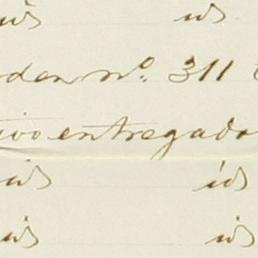 id id
orden nº. 311
tivo entregado
id id
id id